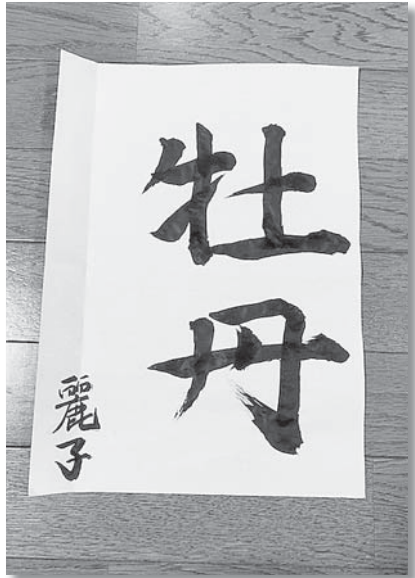 牡丹
麗子